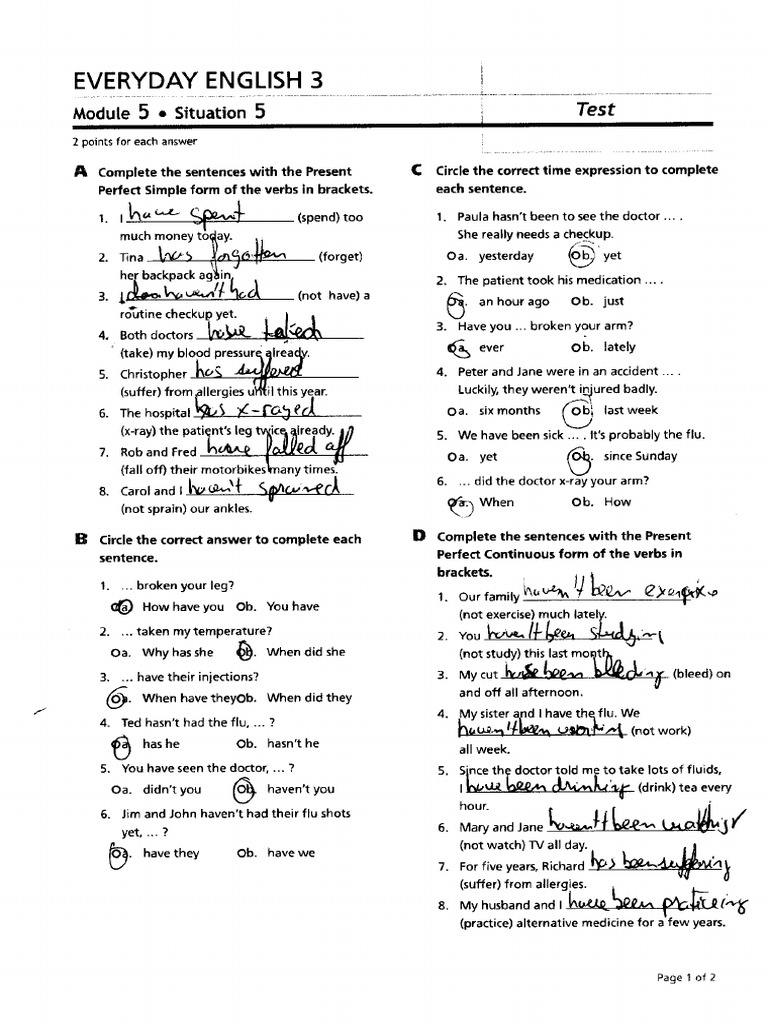 EVERYDAY ENGLISH 3
Module 5 • Situation 5
Test
2 points for each answer
A Complete the sentences with the Present
Perfect Simple form of the verbs in brackets.
1. I have spent (spend) too
much money today.
2. Tina has forgotten (forget)
her backpack again.
3. I haven't had (not have) a
routine checkup yet.
4. Both doctors have
(take) my blood pressure already.
5. Christopher has suffered
(suffer) from allergies until this year.
6. The hospital has x-rayed
(x-ray) the patient's leg twice already.
7. Rob and Fred have falled off
(fall off) their motorbikes many times.
8. Carol and I haven't sprained
(not sprain) our ankles.
B Circle the correct answer to complete each
sentence.
1. ... broken your leg?
Oa. How have you Ob. You have
2. ... taken my temperature?
Oa. Why has she Ob. When did she
3. ... have their injections?
Oa. When have they Ob. When did they
4. Ted hasn't had the flu, ... ?
Oa. has he Ob. hasn't he
5. You have seen the doctor, ... ?
Oa. didn't you Ob. haven't you
6. Jim and John haven't had their flu shots
yet, ... ?
Oa. have they Ob. have we
C Circle the correct time expression to complete
each sentence.
1. Paula hasn't been to see the doctor ... .
She really needs a checkup.
Oa. yesterday Ob. yet
2. The patient took his medication ... .
Oa. an hour ago Ob. just
3. Have you ... broken your arm?
Oa. ever Ob. lately
4. Peter and Jane were in an accident ... .
Luckily, they weren't injured badly.
Oa. six months Ob. last week
5. We have been sick ... . It's probably the flu.
Oa. yet Ob. since Sunday
6. ... did the doctor x-ray your arm?
Oa. When Ob. How
D Complete the sentences with the Present
Perfect Continuous form of the verbs in
brackets.
1. Our family haven't been
(not exercise) much lately.
2. You haven't been studying
(not study) this last month.
3. My cut been bleeding (bleed) on
and off all afternoon.
4. My sister and I have the flu. We
haven't been working (not work)
all week.
5. Since the doctor told me to take lots of fluids,
I have been drinking (drink) tea every
hour.
6. Mary and Jane haven't been watching
(not watch) TV all day.
7. For five years, Richard has been suffering
(suffer) from allergies.
8. My husband and I have been practiceing
(practice) alternative medicine for a few years.
Page 1 of 2